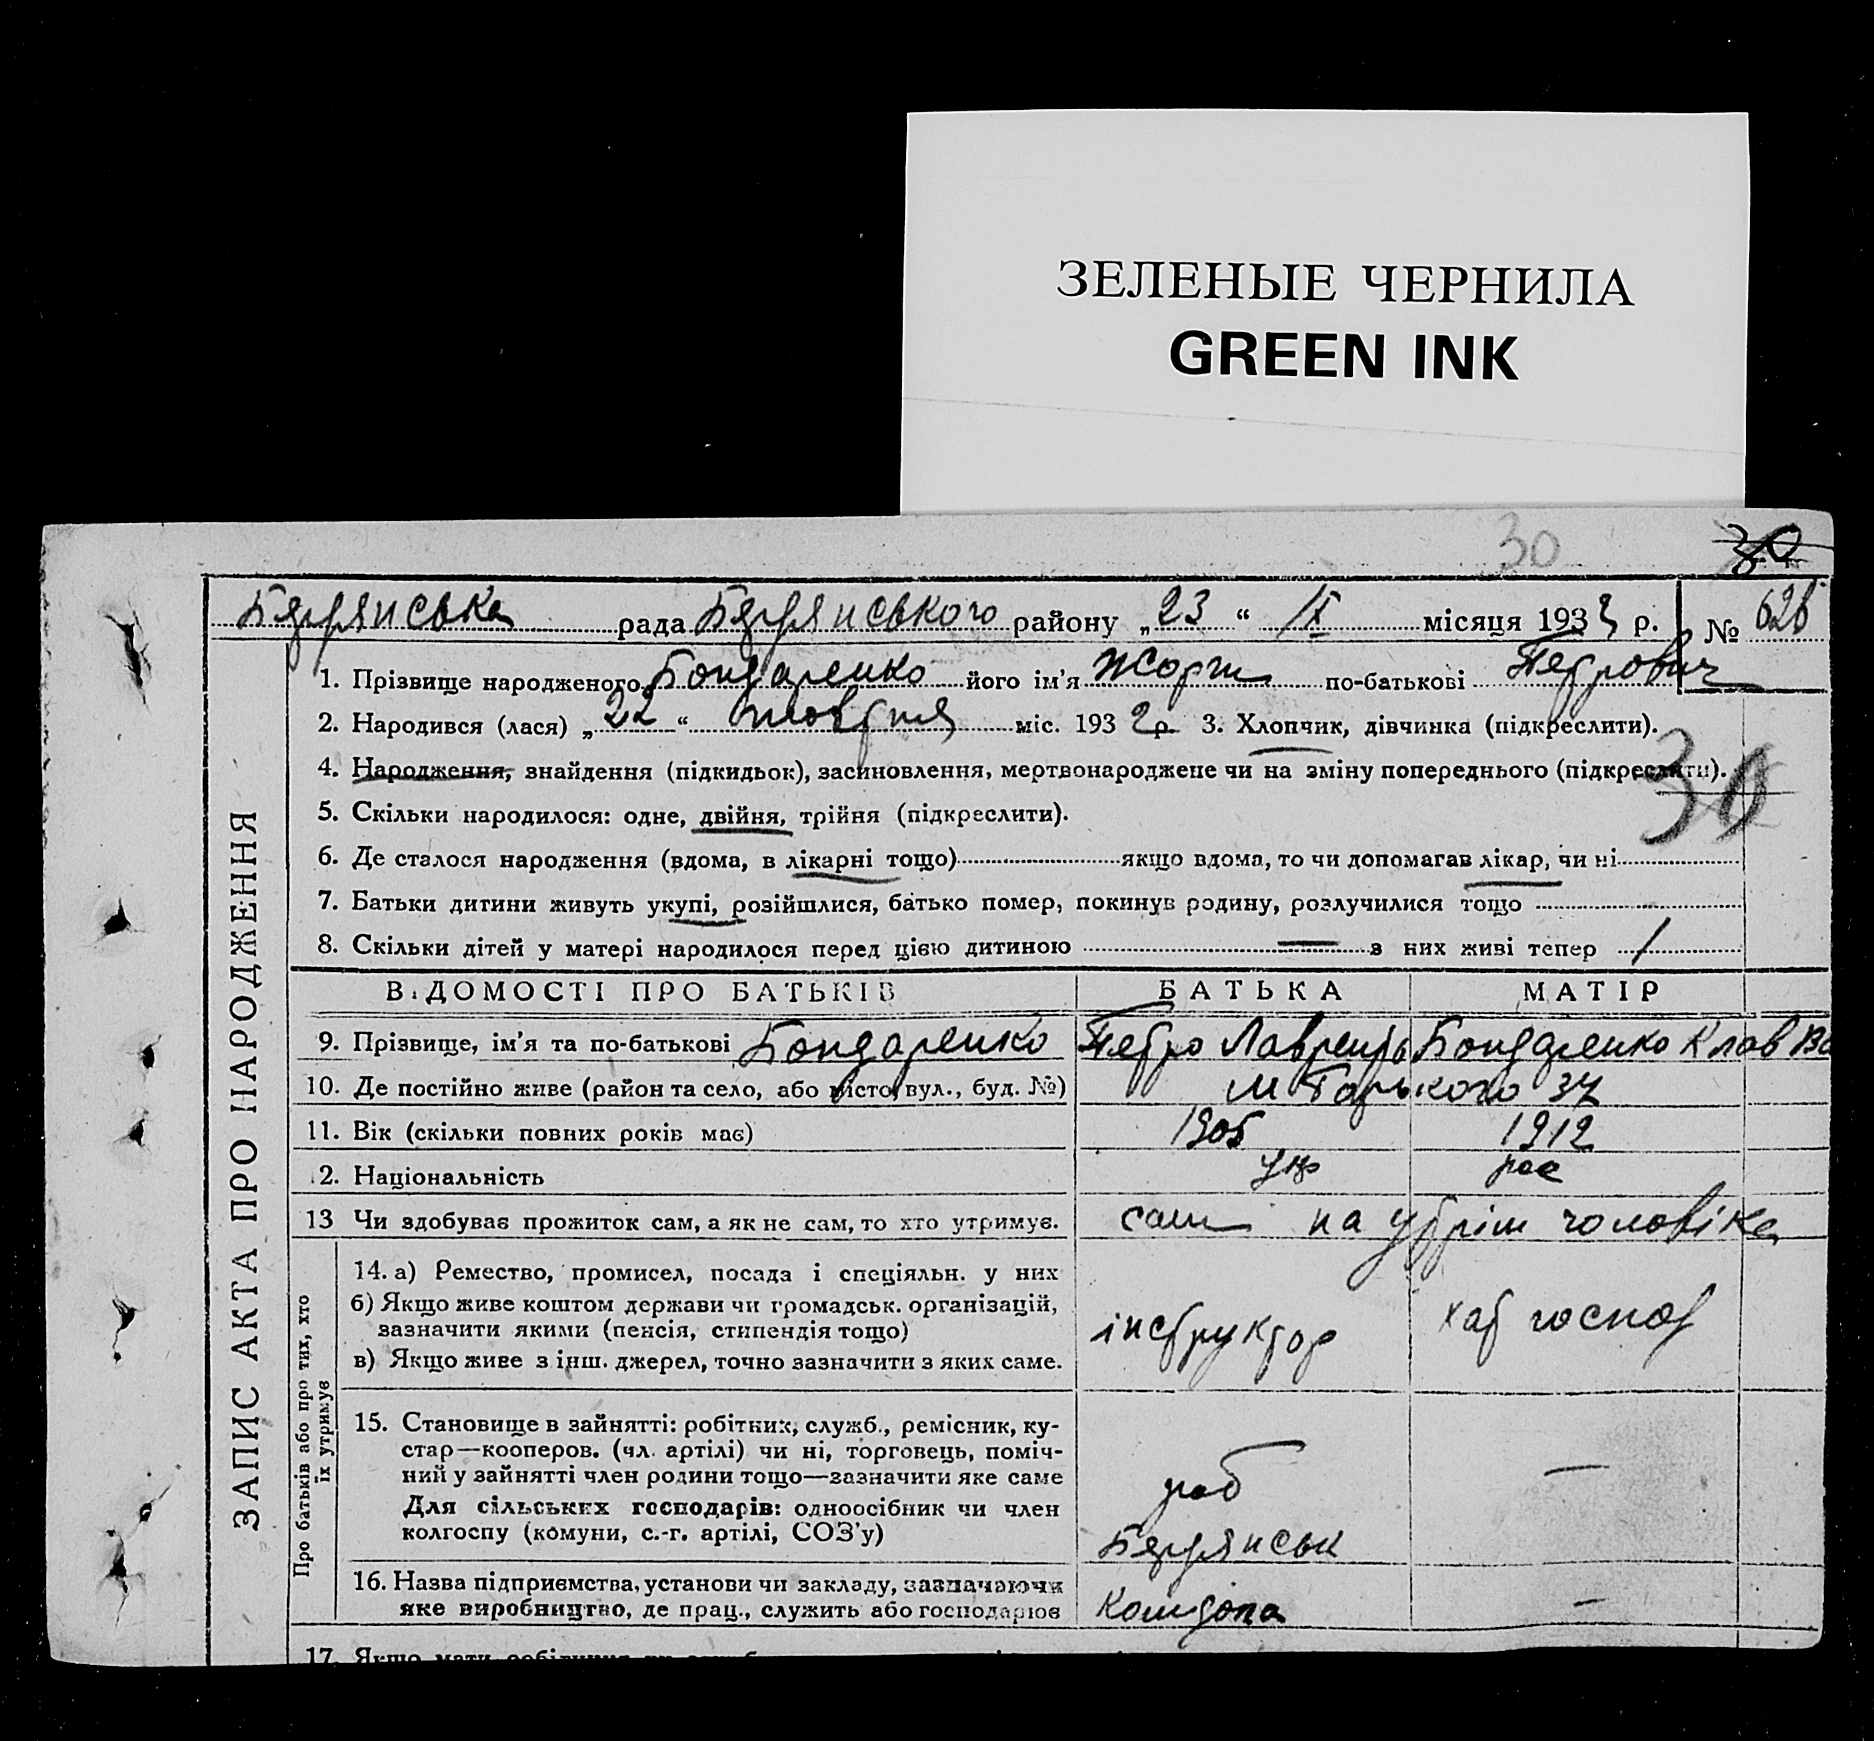 ЗЕЛЕНЫЕ ЧЕРНИЛА
GREEN INK
30
30
Бердянська рада Бердянського району „23“ IX місяця 1933 р. № 626
1. Прізвище народженого Бондаренко його ім'я Жорж по-батькові Петрович
2. Народився (лася) „22“ жовтня міс. 1932 р. 3. Хлопчик, дівчинка (підкреслити).
4. Народження, знайдення (підкидьок), засиновлення, мертвонароджене чи на зміну попереднього (підкреслити).
30
5. Скільки народилося: одне, двійня, трійня (підкреслити).
6. Де сталося народження (вдома, в лікарні тощо) якщо вдома, то чи допомагав лікар, чи ні
7. Батьки дитини живуть укупі, розійшлися, батько помер, покинув родину, розлучилися тощо
8. Скільки дітей у матері народилося перед цією дитиною — з них живі тепер 1
ВІДОМОСТІ ПРО БАТЬКІВ БАТЬКА МАТІР
9. Прізвище, ім'я та по-батькові Бондаренко Петро Лаврентьь Бондаренко Клав Ва
10. Де постійно живе (район та село, або місто, вул., буд. №) М Горького 37
11. Вік (скільки повних років має) 1905 1912
2. Національність укр рос
13 Чи здобуває прожиток сам, а як не сам, то хто утримує. сам на утрім чоловіка
14. а) Ремество, промисел, посада і спеціяльн. у них
б) Якщо живе коштом держави чи громадськ. організацій,
зазначити якими (пенсія, стипендія тощо)
в) Якщо живе з інш. джерел, точно зазначити з яких саме.
інструктор хат господ
15. Становище в зайнятті: робітник, служб., ремісник, ку-
стар—кооперов. (чл. артілі) чи ні, торговець, поміч-
ний у зайнятті член родини тощо—зазначити яке саме
Для сільських господарів: одноосібник чи член
колгоспу (комуни, с.-г. артілі, СОЗ'у)
роб —
Бердянськ
16. Назва підприємства, установи чи закладу, зазначаючи
яке виробництво, де прац., служить або господарює
—
17. Якщо мати
ЗАПИС АКТА ПРО НАРОДЖЕННЯ
Про батьків або про тих, хто
їх утримує